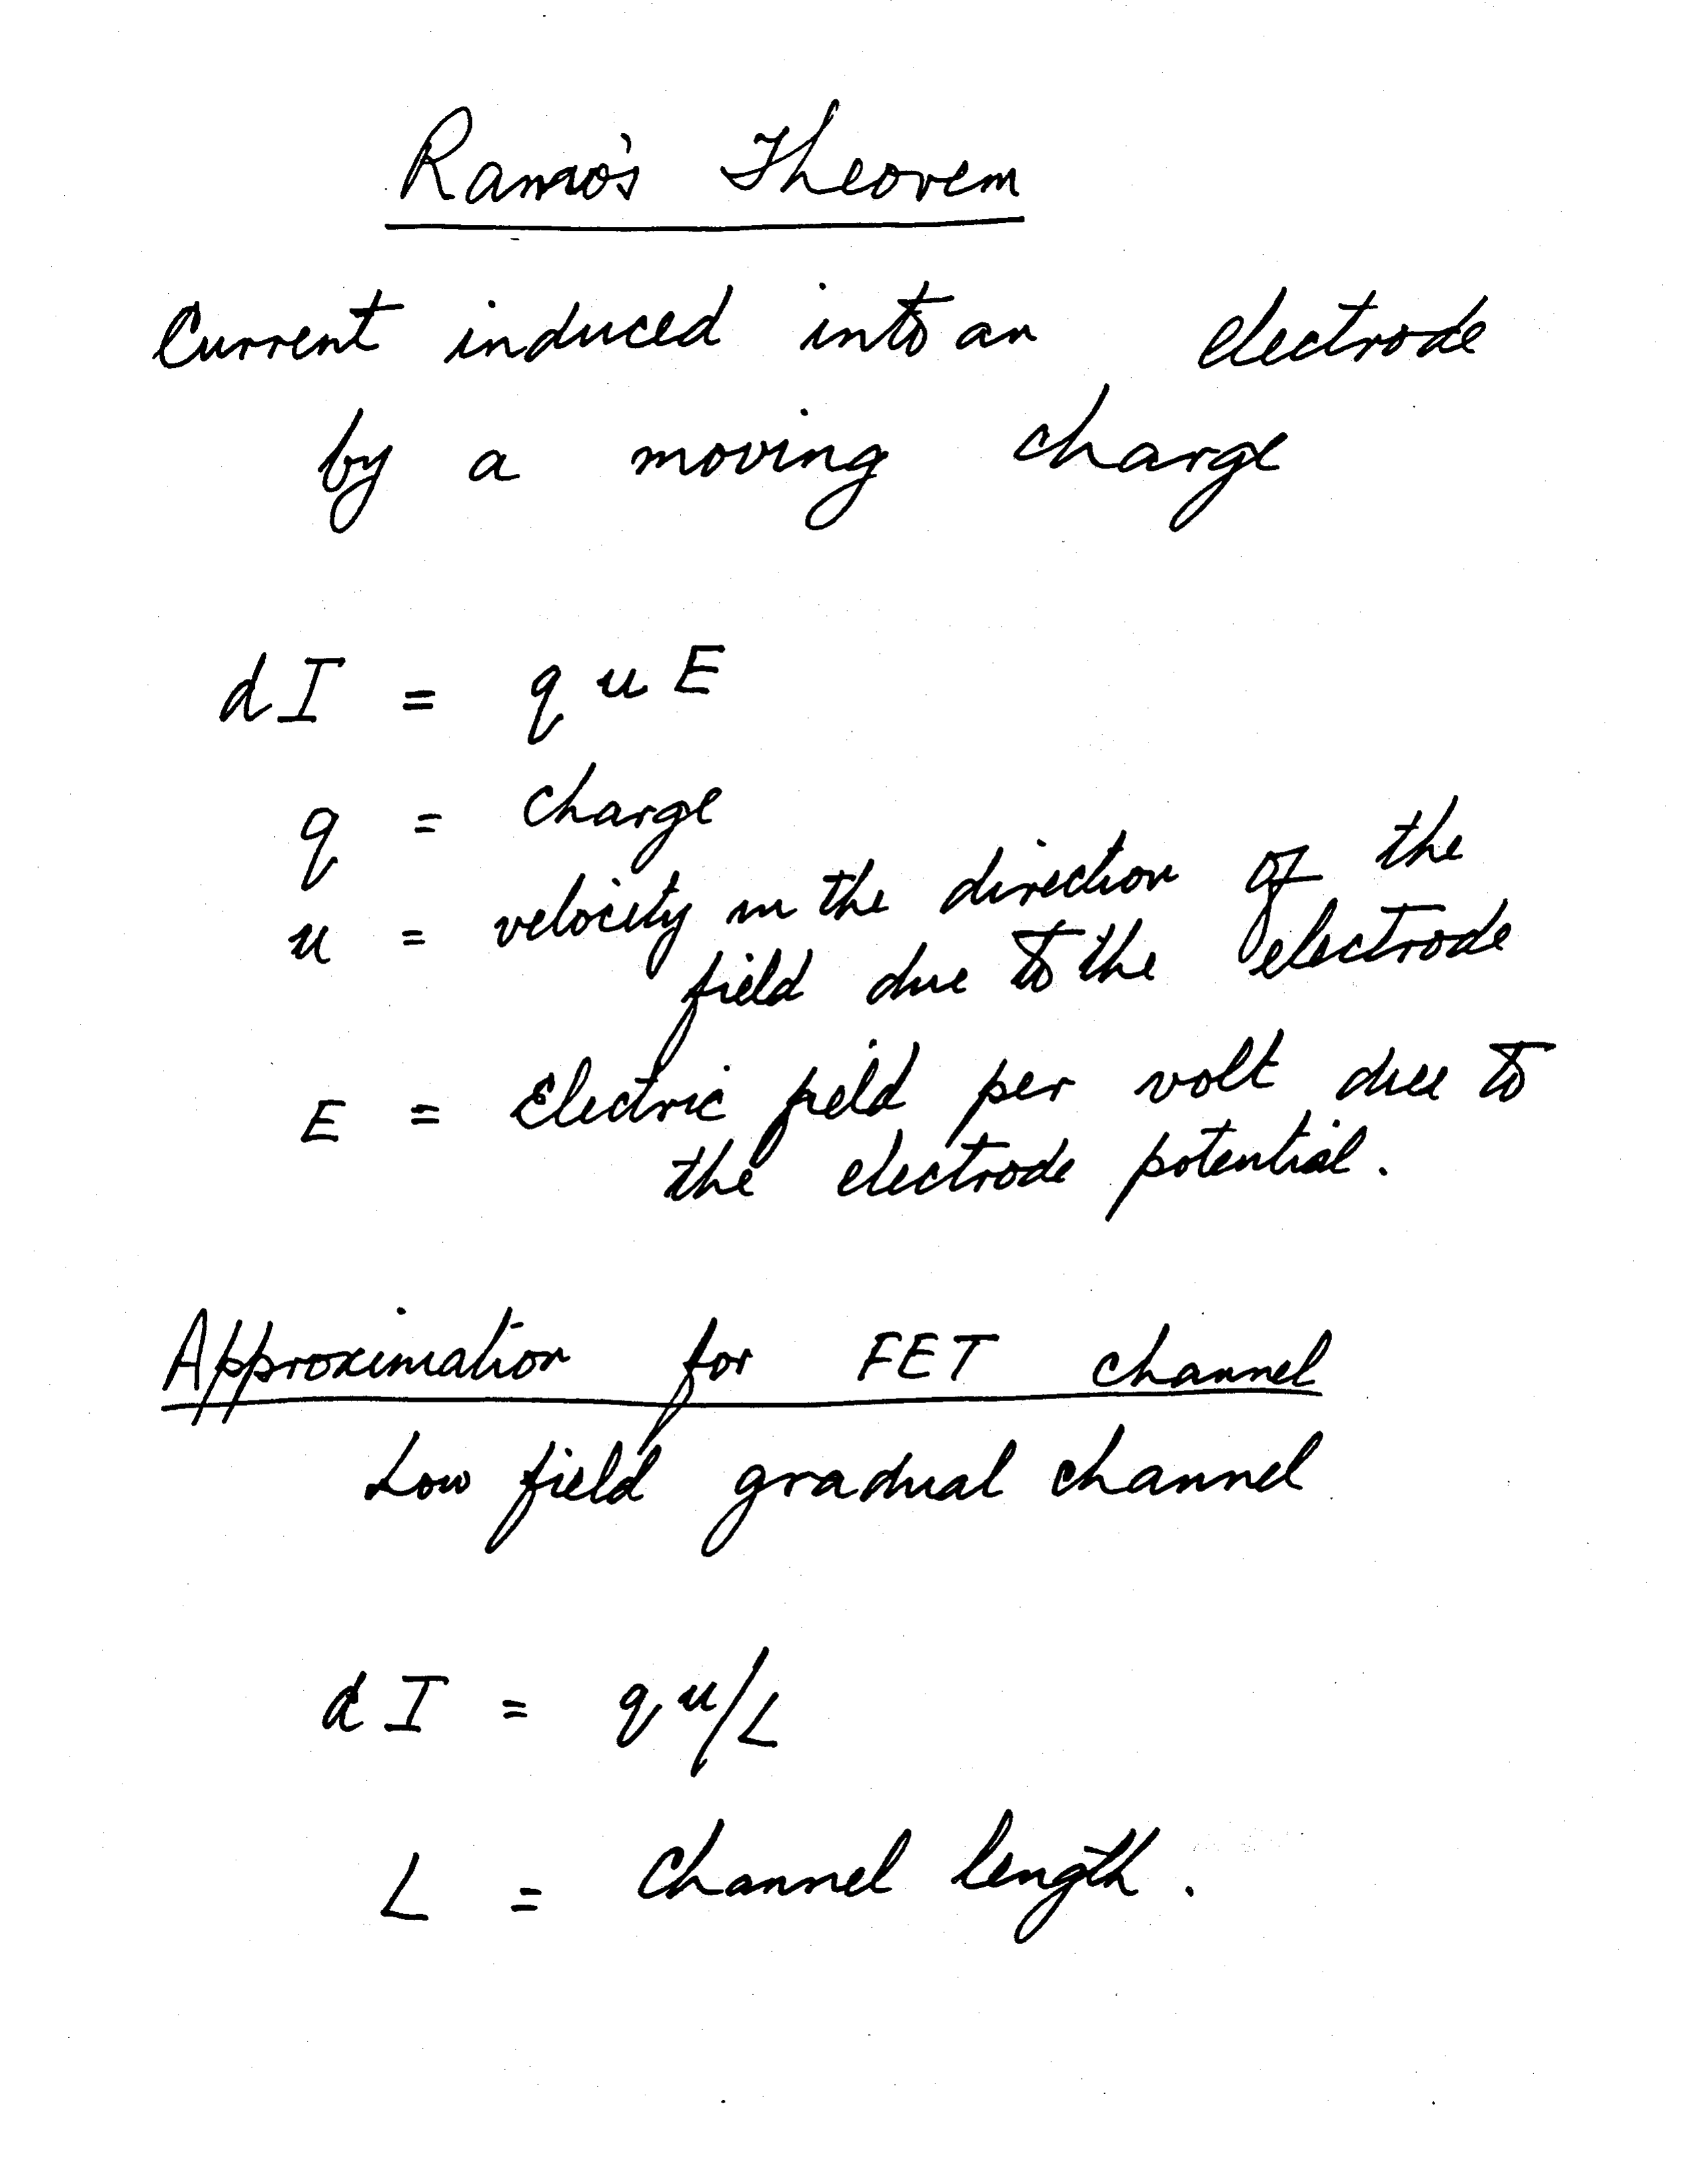 Ramo's Theorem
Current induced into an electrode
by a moving charge
dI = q u E
q = charge
u = velocity in the direction of the
field due to the electrode
E = Electric field per volt due to
the electrode potential.
Approximation for FET channel
Low field gradual channel
dI = q u/L
L = channel length.